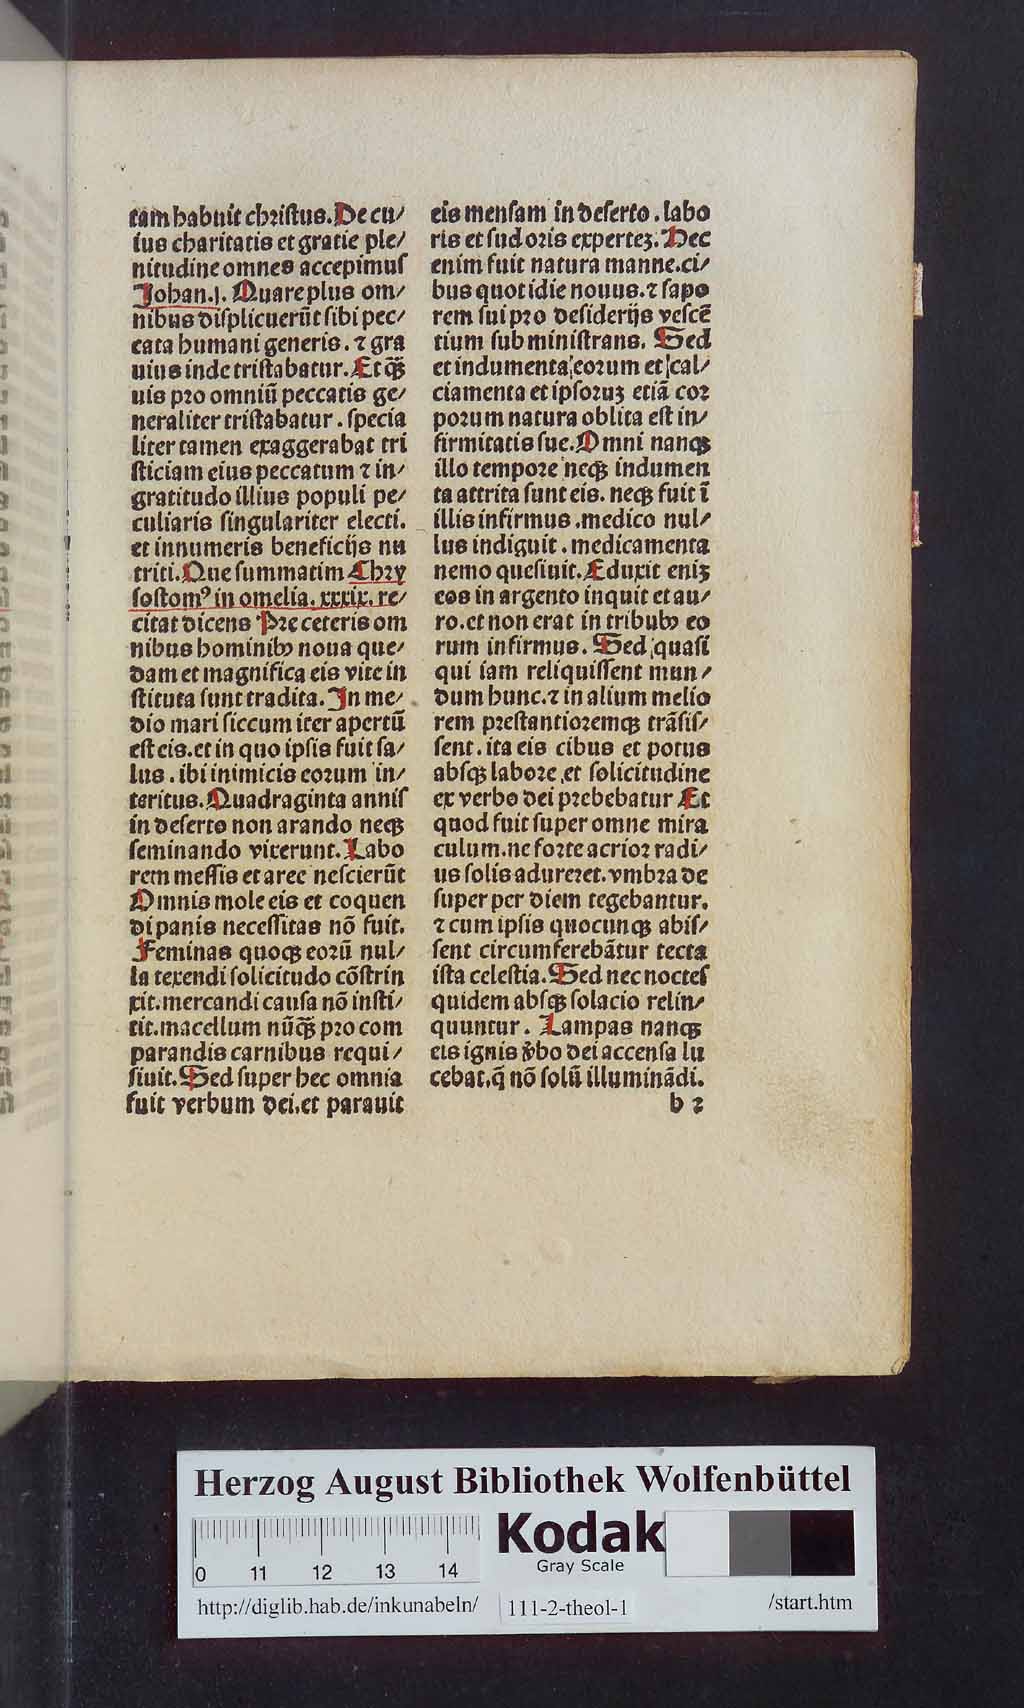 tam habuit christus. De cu/
ius charitatis et gratie ple/
nitudine omnes accepimus
Johan.j. Quare plus om/
nibus displicuerūt sibi pec/
cata humani generis. ⁊ gra
uius inde tristabatur. Et qꝫ̃
uis pro omniū peccatis ge/
neraliter tristabatur. specia
liter tamen exaggerabat tri
sticiam eius peccatum ⁊ in/
gratitudo illius populi pe/
culiaris singulariter electi.
et innumeris beneficijs nu
triti. Que summatim Chry
sostomꝰ in omelia. xxxix. re/
citat dicens Pre ceteris om
nibus hominibꝫ noua que/
dam et magnifica eis vite in
stituta sunt tradita. In me/
dio mari siccum iter apertū
est eis. et in quo ipsis fuit sa/
lus. ibi inimicis eorum in/
teritus. Quadraginta annis
in deserto non arando neqꝫ
seminando vixerunt. Labo
rem messis et aree nescierūt
Omnis mole eis et coquen
di panis necessitas nō fuit.
Feminas quoqꝫ eorū nul/
la texendi solicitudo cōstrin
xit. mercandi causa nō insti/
tit. macellum nūqꝫ̃ pro com
parandis carnibus requi/
siuit. Sed super hec omnia
fuit verbum dei. et parauit
eis mensam in deserto. labo
ris et sudoris experteꝫ. Hec
enim fuit natura manne. ci/
bus quotidie nouus. ⁊ sapo
rem sui pro desiderijs vescē
tium subministrans. Sed
et indumenta eorum et cal/
ciamenta et ipsoruꝫ etiā cor
porum natura oblita est in/
firmitatis sue. Omni nanqꝫ
illo tempore neqꝫ indumen
ta attrita sunt eis. neqꝫ fuit ī
illis infirmus. medico nul/
lus indiguit. medicamenta
nemo quesiuit. Eduxit eniꝫ
eos in argento inquit et au/
ro. et non erat in tribubꝫ eo
rum infirmus. Sed quasi
qui iam reliquissent mun/
dum hunc. ⁊ in alium melio
rem prestantioremqꝫ trāsis/
sent. ita eis cibus et potus
absqꝫ labore et solicitudine
ex verbo dei prebebatur Et
quod fuit super omne mira
culum. ne forte acrior radi/
us solis adureret. vmbra de
super per diem tegebantur.
⁊ cum ipsis quocunqꝫ abis/
sent circumferebātur tecta
ista celestia. Sed nec noctes
quidem absqꝫ solacio relin/
quuntur. Lampas nanqꝫ
eis ignis v̄bo dei accensa lu
cebat. q̄ nō solū illuminādi.
b 2
Herzog August Bibliothek Wolfenbüttel
0 11 12 13 14
Kodak
Gray Scale
http://diglib.hab.de/inkunabeln/ 111-2-theol-1 /start.htm